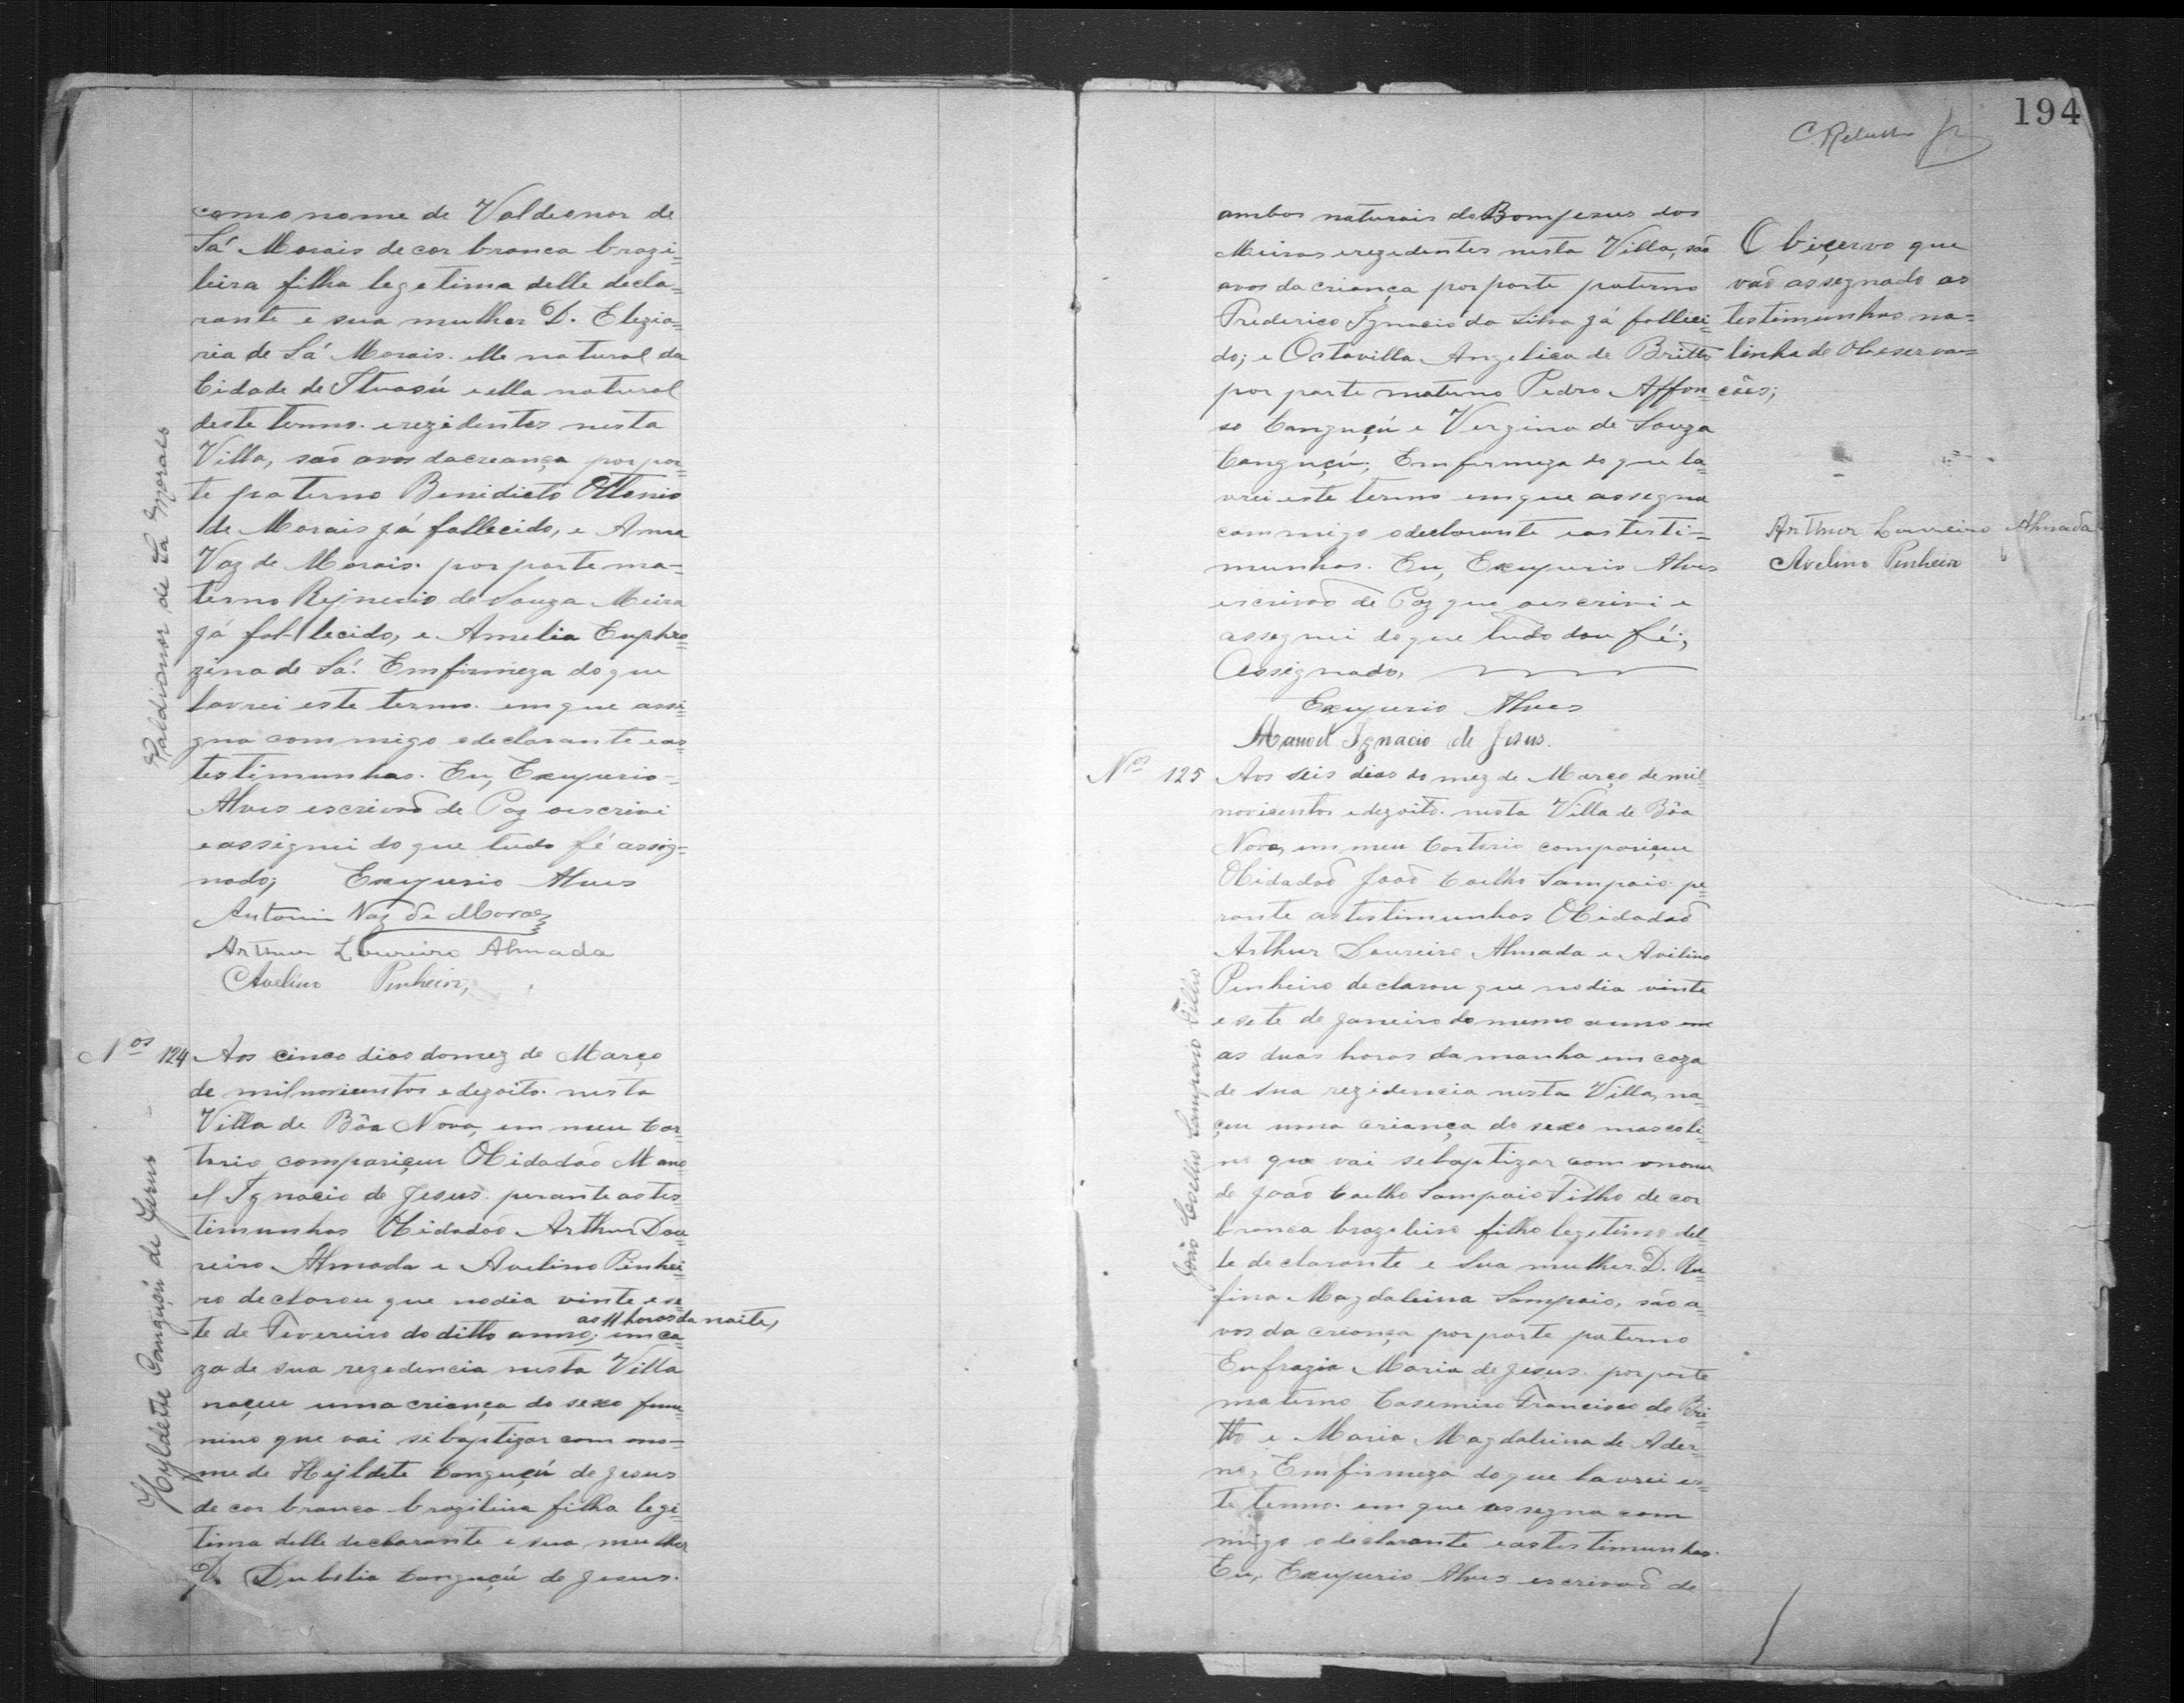 como nome de Valdeonor de
Sá Morais de cor branca brazi=
leira filha legetima delle decla=
rante e sua mulher D. Elezia=
ria de Sá Morais. elle natural da
Cidade de Ituasú e ella natural
deste termo. erezidentes nesta
Villa, são avos dacreança por par=
te paterno Benidicto Ottonio
de Morais já fallecido, e Anna
Vaz de Morais. por parte ma=
terno Rejnerio de Souza Meira
já fallecido, e Amelia Euphro=
zina de Sá. Emfirmeza do que
lavrei este termo. em que assi=
gna commigo odeclarante e as
testimunhas. Eu, Exuperio
Alves escrivaõ de Paz oescrivi
e assignei do que tudo fé assig=
nado; Exuperio Alves
Antonio Vaz de Moraes
Arthur Loureiro Almada
Avelino Pinheiro,
Valdionor de Sá Morais
Nos 124 Aos cinco dias domez de Março
de mil novicentos e dezoito. nesta
Villa de Bôa Nova, em meu Car=
torio compariçeu OCidadaõ Mano
el Ignacio de Jesus. perante as tes=
timunhas OCidadaõ Arthur Lou=
reiro Almada e Avelino Pinhei=
ro declarou que nodia vinte e se=
as 11 horas da noite,
te de Fevereiro do ditto anno; em ca=
za de sua rezedencia nesta Villa
naçeu uma criança do sexo feme=
nino que vai si baptizar com ono=
me de Hejldete Canguçú de Jesus
de cor branca brazileira filha legi=
tima delle declarante e sua mulher
D. Dubelia Canguçú de Jesus.
Hyldette Canguçú de Jesus
194
ambos naturais do Bomjesus dos
Meiras erezedentes nesta Villa, saõ
avos da criança por parte paterno
Frederico Ignacio da Silva já falleci=
do; e Octavilla Angelica de Britto
por parte materno Pedro Affon=
so Canguçú e Vergina de Souza
Canguçú; Emfirmeza do que la=
vrei este termo emque assegna
commigo odeclarante eastesti=
munhas. Eu, Exuperio Alves
escrivaõ de Paz que oescrivi e
assegnei do que tudo dou fé;
Assegnado,
Exuperio Alves
Manoel Ignacio de Jesus.
Obiçervo que
vaõ assegnado as
testimunhas na=
linha de Obeserva=
cões;
Arthur Loureiro Almada
Avelino Pinheiro
Nos 125 Aos seis dias do mez de Março de mil
novicentos edezoito. nesta Villa de Bôa
Nova, em meu Cartorio compariçeu
OCidadaõ Joaõ Coelho Sampaio. pe=
rante astestimunhas OCidadaõ
Arthur Loureiro Almada e Avilino
Pinheiro declarou que nodia vinte
e sete de Janeiro do mesmo anno em
as duas horas da manha em caza
de sua rezidencia nesta Villa, na=
çeu uma criança do sexo mascoli=
no que vai sebaptizar com onome
de Joaõ Coelho Sampaio Filho de cor
branca brazileiro filho legetimo del=
le declarante e sua mulher D. Ru=
fina Magdaleina Sampaio, são a=
vos da criança por parte paterno
Enfrazia Maria de Jesus. por parte
materno Casemiro Francisco de Bri=
tto e Maria Magdaleina de Ader=
no, Emfirmeza do que lavrei es=
te termo. em que assegna com
migo odeclarante eastestimunhas.
Eu, Exuperio Alves escrivaõ de
João Coelho Sampaio Filho